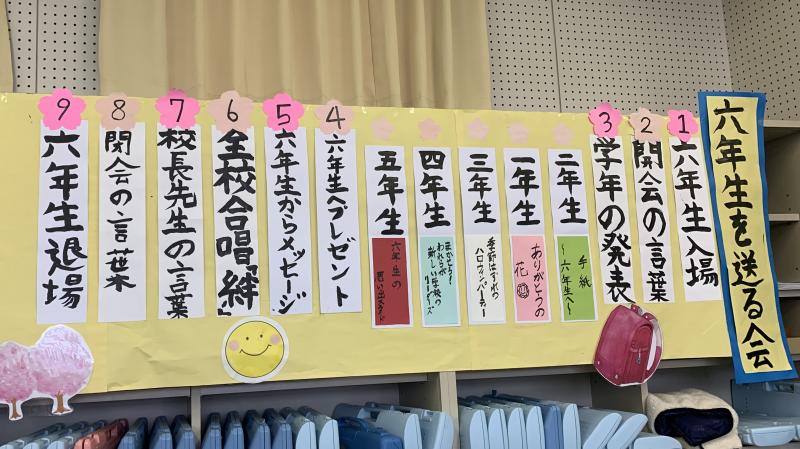 六年生を送る会
1
六年生入場
2
開会の言葉
3
学年の発表
二年生
手紙
～六年生へ～
一年生
ありがとうの
花
三年生
季節はずれの
ハロウィンパーティー
四年生
われらが
新しい学校の
リーダーズ
五年生
六年生の
思い出
4
六年生へプレゼント
5
六年生からメッセージ
6
全校合唱「絆」
7
校長先生の言葉
8
閉会の言葉
9
六年生退場